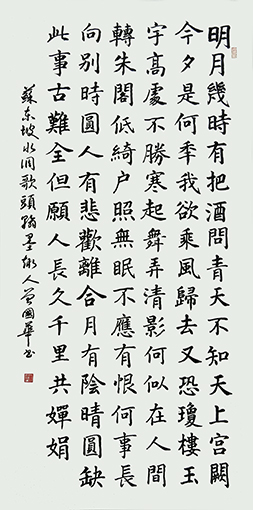 明月幾時有把酒問青天不知天上宮闕
今夕是何秊我欲乘風歸去又恐瓊樓玉
宇高處不勝寒起舞弄清影何似在人間
轉朱閣低綺户照無眠不應有恨何事長
向別時圓人有悲歡離合月有陰晴圓缺
此事古難全但願人長久千里共嬋娟
蘇东坡水调歌頭翰墨人曾國華书